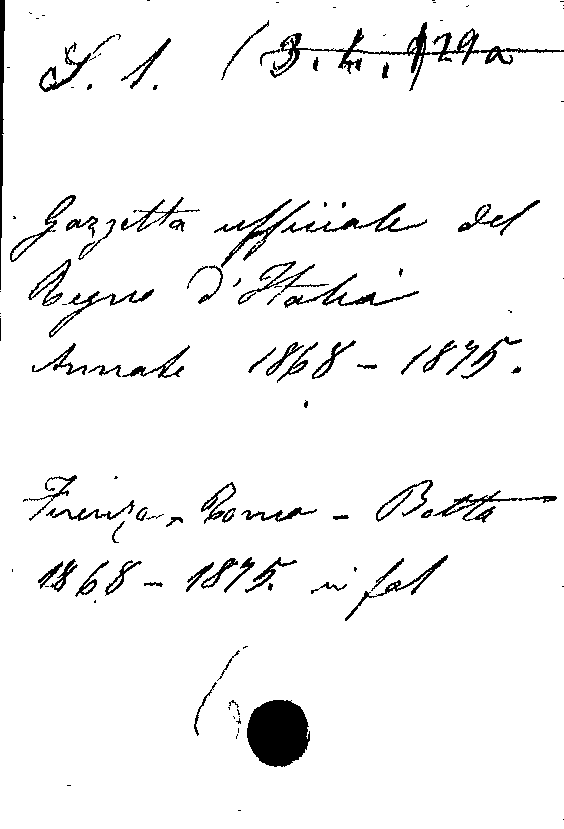 S. 1. (3. 4. 129a
Gazzetta ufficiale del
Regno d'Italia
Annate 1868 - 1875.
Firenza, Roma - Botta
1868 - 1875. in fol
(